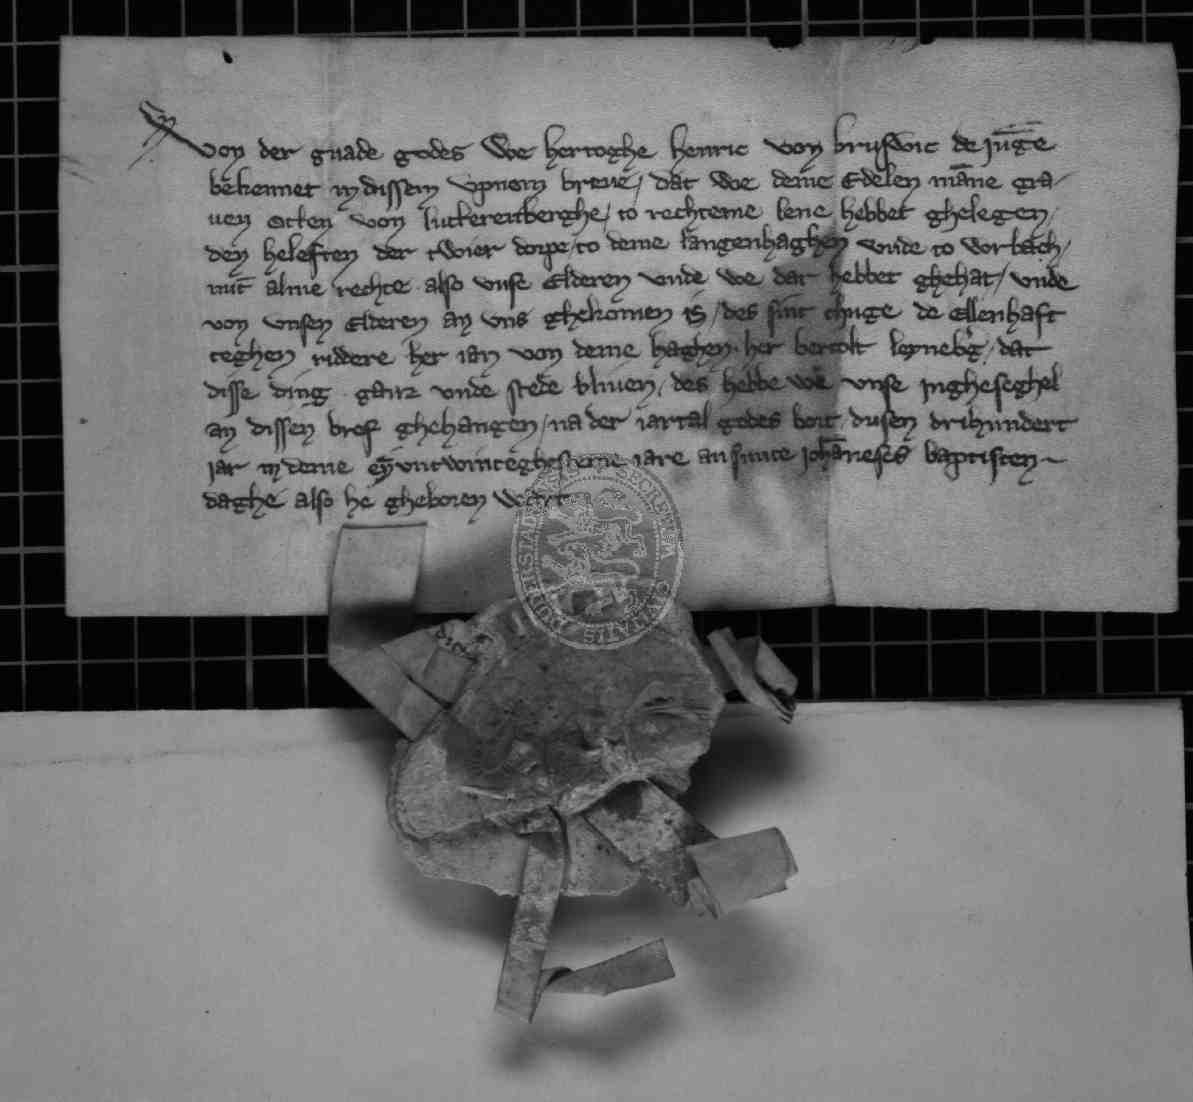 von der gnade godes We hertoghe henric von bruswic de junge
bekennet in dissem openem breve / dat we deme Edelen manne gra-
uen Otten von lutterenberghe / to rechteme lene hebbet ghelegen /
den helften der twier dorpe / to deme langenhaghen vnde to worbich /
mit alme rechte also vnse Elderen vnde we dar hebbet ghehat / vnde
von vnsen Elderen an vns ghekomen is / des sint thuge de Ellenhaft
teghen riddere her ian von deme haghen her bertolt / dat
disse ding ganz vnde stede bliuen / des hebbe we vnse Ingheseghel
an dissen bref ghehangen / na der iartal godes bort dusen drihundert
iar in deme eyn vntwinteghesteme iare an sunte Johanneses baptisten
daghe also he gheboren wart
SECRETVM CIVITATIS DUDERSTADENSIS